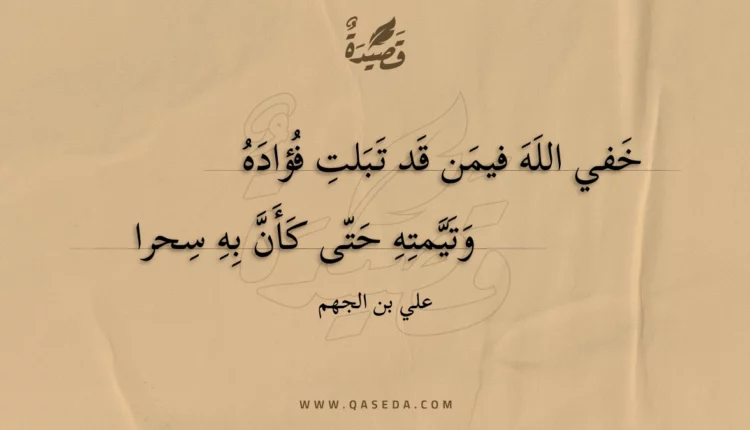 قَصِيدَةٌ
خَفي اللَهَ فيمَن قَد تَبَلتِ فُؤادَهُ
وَتَيَّمتِهِ حَتّى كَأَنَّ بِهِ سِحرا
علي بن الجهم
WWW.QASEDA.COM